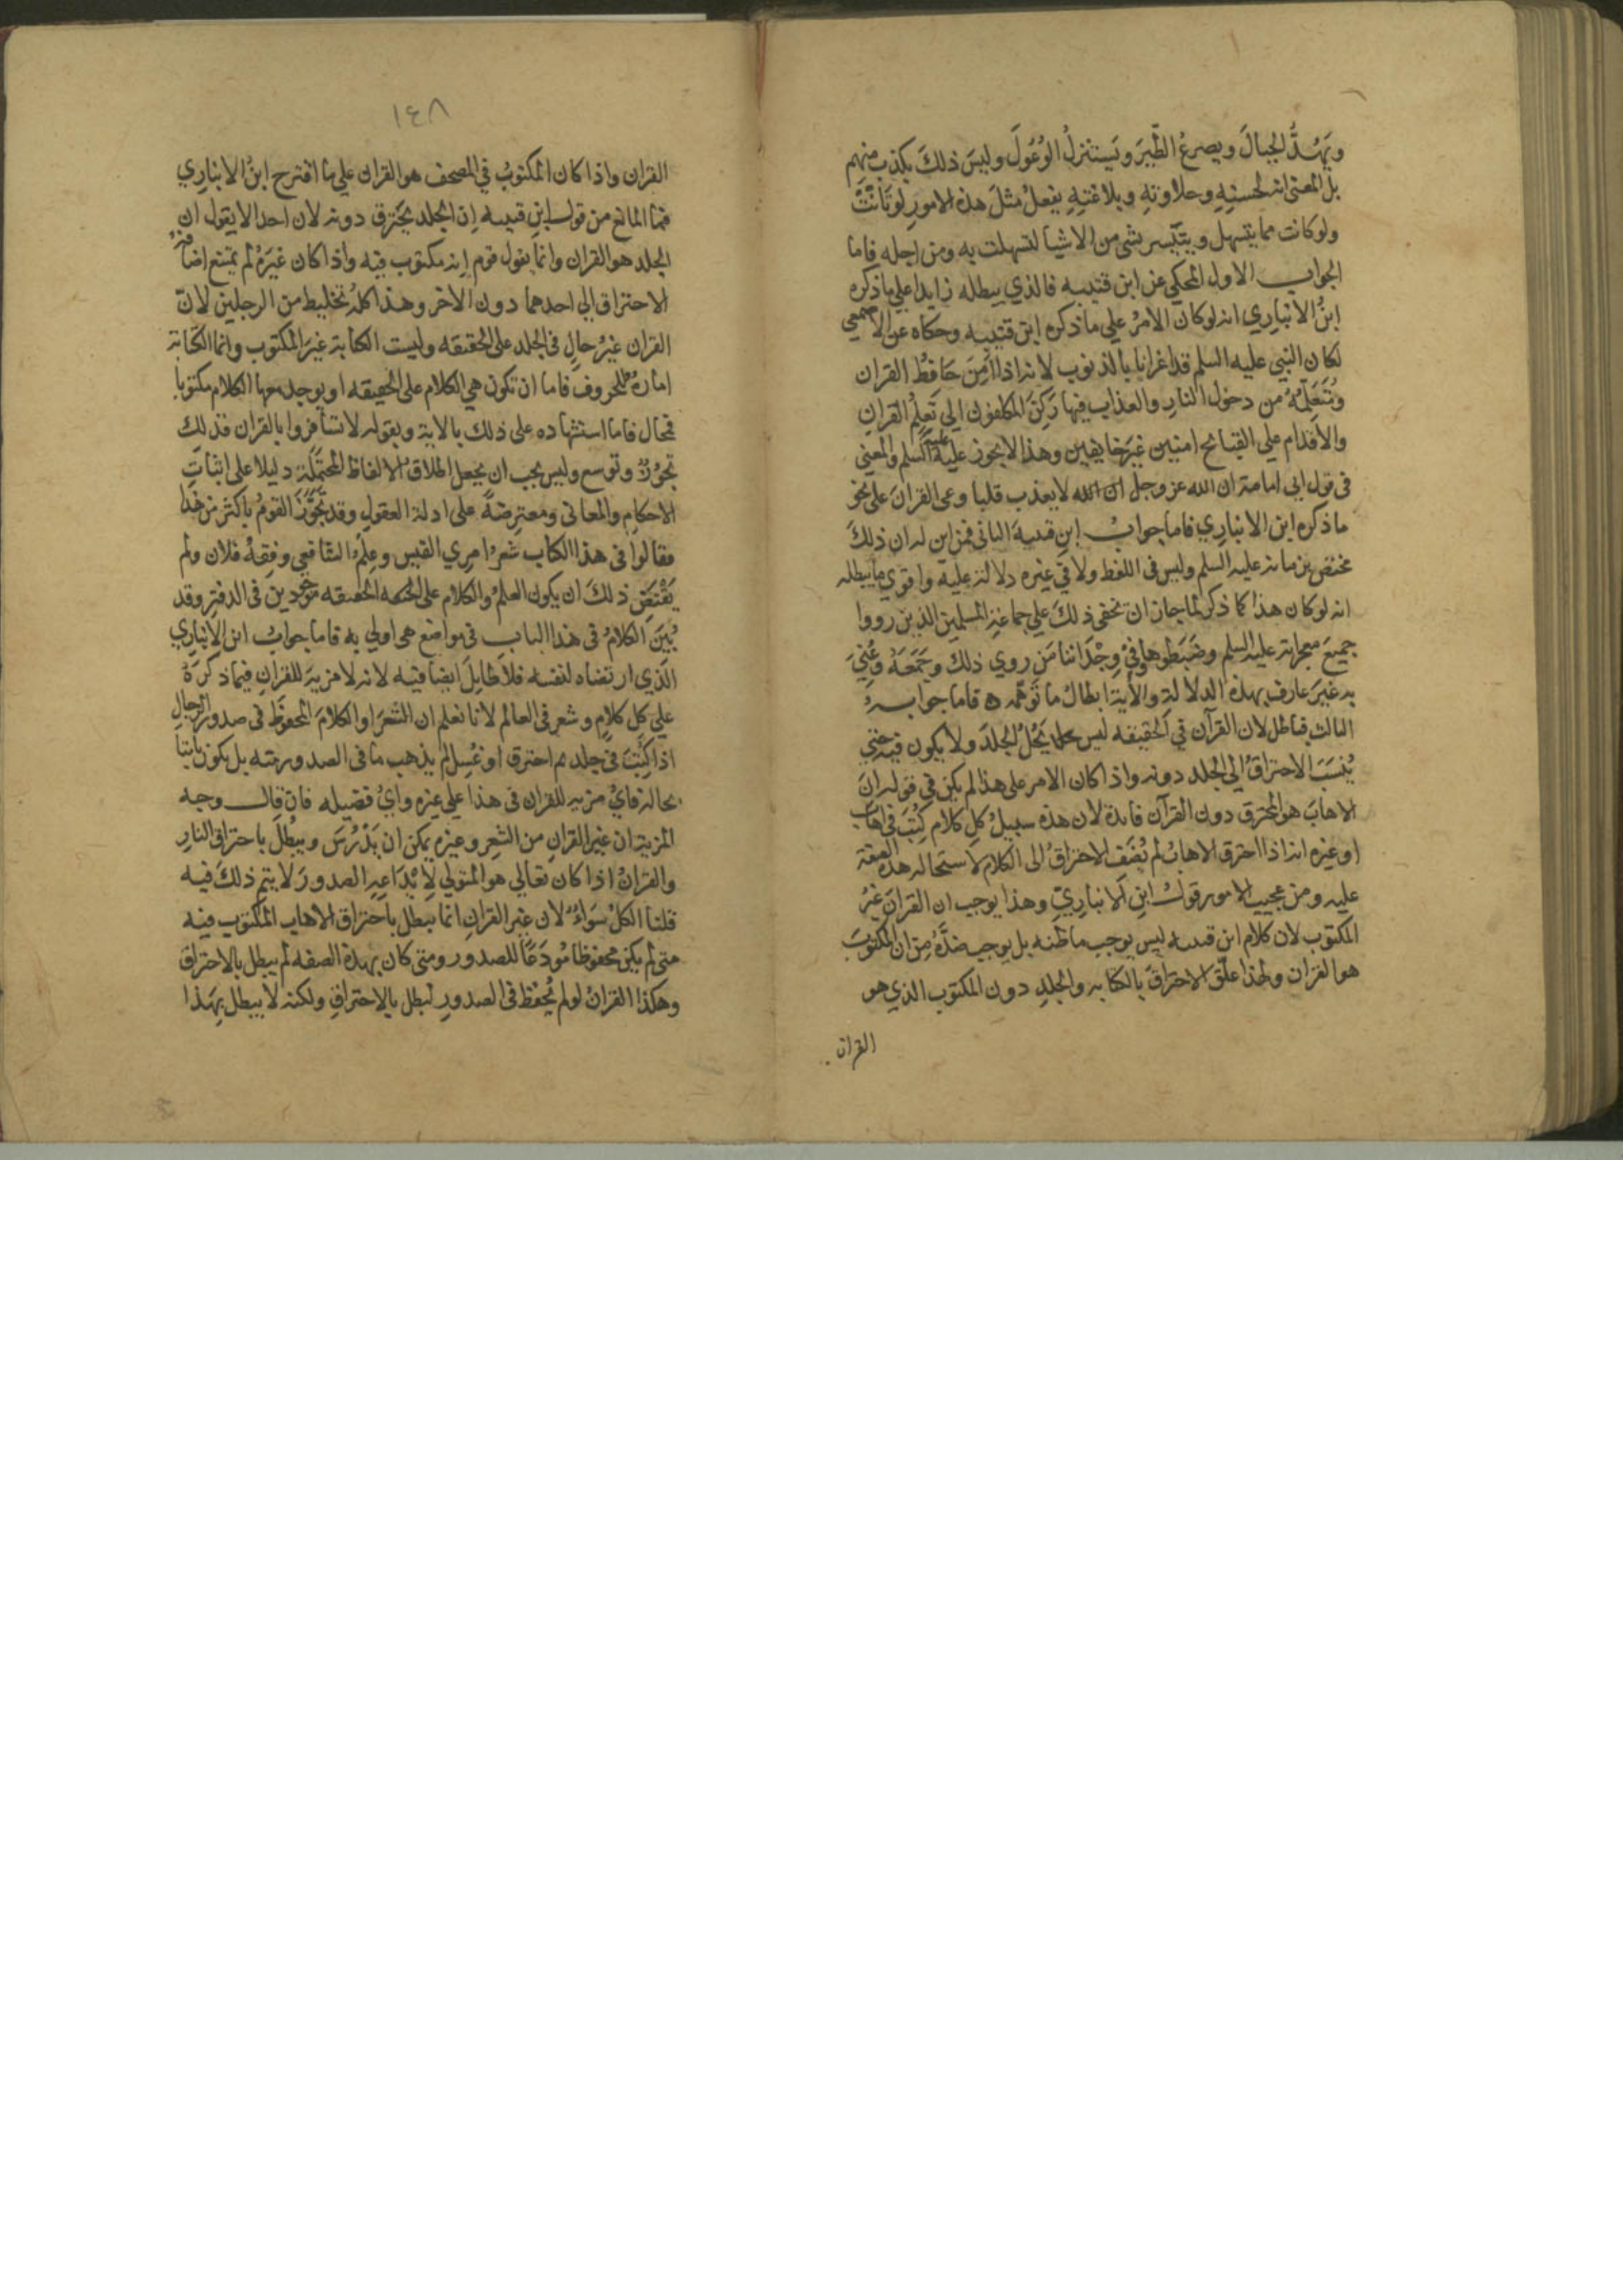 ويَهُدُّ الجبالَ ويصرعُ الطَّيرَ ويَستنزلُ الوُعُولَ وليسَ ذلكَ بكذب منهم
بل المعنى انه لحسنِهِ وحلاوتهِ وبلاغتهِ يفعلُ مثلَ هذه الامور لو تَأتَّتْ
ولو كانت مما يتسهل ويتيسر بشي من الاشيا لتسهلت به ومن اجله فاما
الجواب الاول المحكي عن ابن قتيبه فالذي يبطله زايدا علي ما ذكره
ابنُ الانبارِي انه لو كان الامرُ علي ما ذكره ابن قتيبه وحكاه عن الاصمعي
لكان النبي عليه السلم قد اغرانا بالذنوب لانه اذا اَمِنَ حَافِظُ القران
ومُتَعَلِّمُهُ من دخول النارِ والعذاب فيها رَكِنَ المكلفون الي تَعَلُّمِ القرانِ
والاقدام علي القبائح امنين غيرَ خايفين وهذا لا يجوز عليه السلم والمعني
في قول ابي امامة ان الله عز وجل لا يعذب قلبا وعى القرانَ على نحو
ما ذكره ابن الانبارِي فاما جوابُ ابنِ قتيبهَ الثاني فمن اين له ان ذلكَ
مختص بزمانه عليه السلم وليس في اللفظ ولا في غيره دلالة عليه واقوي ما يبطله
انه لو كان هذا كما ذكر لما جاز ان يخفى ذلكَ علي جماعةِ المسلمين الذين رووا
جميعَ معجزاته عليه السلم وضبَطُوها وفي وِجْدَاننا مَن روي ذلك وجَمَعَهُ وعُنِيَ
به غيرَ عارف بهذه الدلالةِ والايةِ ابطالُ ما تَوَهَّمه ه فاما جوابه
الثالث فباطل لان القرآن في الحقيقه ليس يَحُلُّ الجلدَ ولا يكون فيه حتي
يُنسَبَ الاحتراقُ الي الجلد دونه واذا كان الامر على هذا لم يكن في قوله انَّ
الاهابَ هو المحترق دون القرآن فايدة لان هذه سبيلُ كلِ كلام كُتِبَ في اهاب
او غيره انه اذا احترق الاهابُ لم يُضَفِ الاحتراقُ الى الكلام لاستحالة هذه الصفة
عليه ومن عجيب الامور قولُ ابنِ الانبارِيّ وهذا يوجب ان القرانَ غيرُ
المكتوب لان كلام ابن قتيبه ليس يوجب ما ظنه بل يوجب ضدَّهُ من ان المكتوبَ
هو القران ولهذا علّق الاحتراقَ بالكتابه والجلدِ دون المكتوب الذي هو
القران
١٤٨
القران واذا كان المكتوبُ في المصحف هو القران علي ما اقترح ابنُ الانبارِي
فما المانع من قول ابنِ قتيبه اِن الجلد يحترق دونه لان احدا لا يقول ان
الجلد هو القران وانما يقول قوم اِنه مكتوب فيه واذا كان غيرَهُ لم يمتنع اضافة
الاحتراق الي احدهما دون الاخر وهذا كلهُ تخليط من الرجلين لان
القران غيرُ حالٍ في الجلد على الحقيقه وليست الكتابة غيرَ المكتوب وانما الكتابة
امارةٌ للحروف فاما ان تكون هي الكلام على الحقيقه او يوجد معها الكلام مكتوبا
فمحال فاما استشهاده على ذلك بالاية وبقوله لا تسافروا بالقران فذلك
تجوُّزٌ وتوسع وليس يجب ان يجعل اطلاقُ الالفاظ المحتمِلة دليلا على اثباتِ
الاحكامِ والمعاني ومعترضةً على ادلة العقول وقد تَجَوَّزَ القومُ باكثر من هذا
فقالوا في هذا الكتاب شعرُ امري القيس وعِلمُ الشافعي وفِقهُ فلان ولم
يَقْتَضِ ذلكَ ان يكون العلمُ والكلام على الحقيقه موجودين في الدفتر وقد
بُيِّنَ الكلامُ في هذا الباب في مواضع هي اولي به فاما جوابُ ابن الانبارِي
الَّذي ارتضاه لنفسه فلا طايلَ ايضا فيه لانه لا مزيةَ للقرانِ فيما ذكرهُ
علي كل كلامٍ وشعرٍ في العالم لانا نعلم ان الشعرَ او الكلامَ المحفوظَ في صدور الرجالِ
اذا كُتِبَ في جلد ثم احترق او غُسِل لم يذهب ما في الصدور منه بل يكون ثابتا
بحاله فايُّ مزيه للقران في هذا علي غيره وايُّ فضيله فان قال وجه
المزية ان غير القران من الشعِر وغيره يمكن ان يَنْدرسَ ويبطُلَ باحتراق النار
والقرانُ اذا كان تعالي هو المتولي لاِيْدَاعِهِ الصدورَ لا يتم ذلكَ فيه
قلنا الكلُ سَوَاءٌ لان غير القران انما يبطل باحتراق الاهاب المكتوب فيه
متي لم يكن محفوظا مُودَعًا للصدور ومتي كان بهذه الصفه لم يبطل بالاحتراق
وهكذا القرانُ لو لم يُحفَظ في الصدورِ لبطل بالاحتراقِ ولكنه لا يبطل بِهَذا